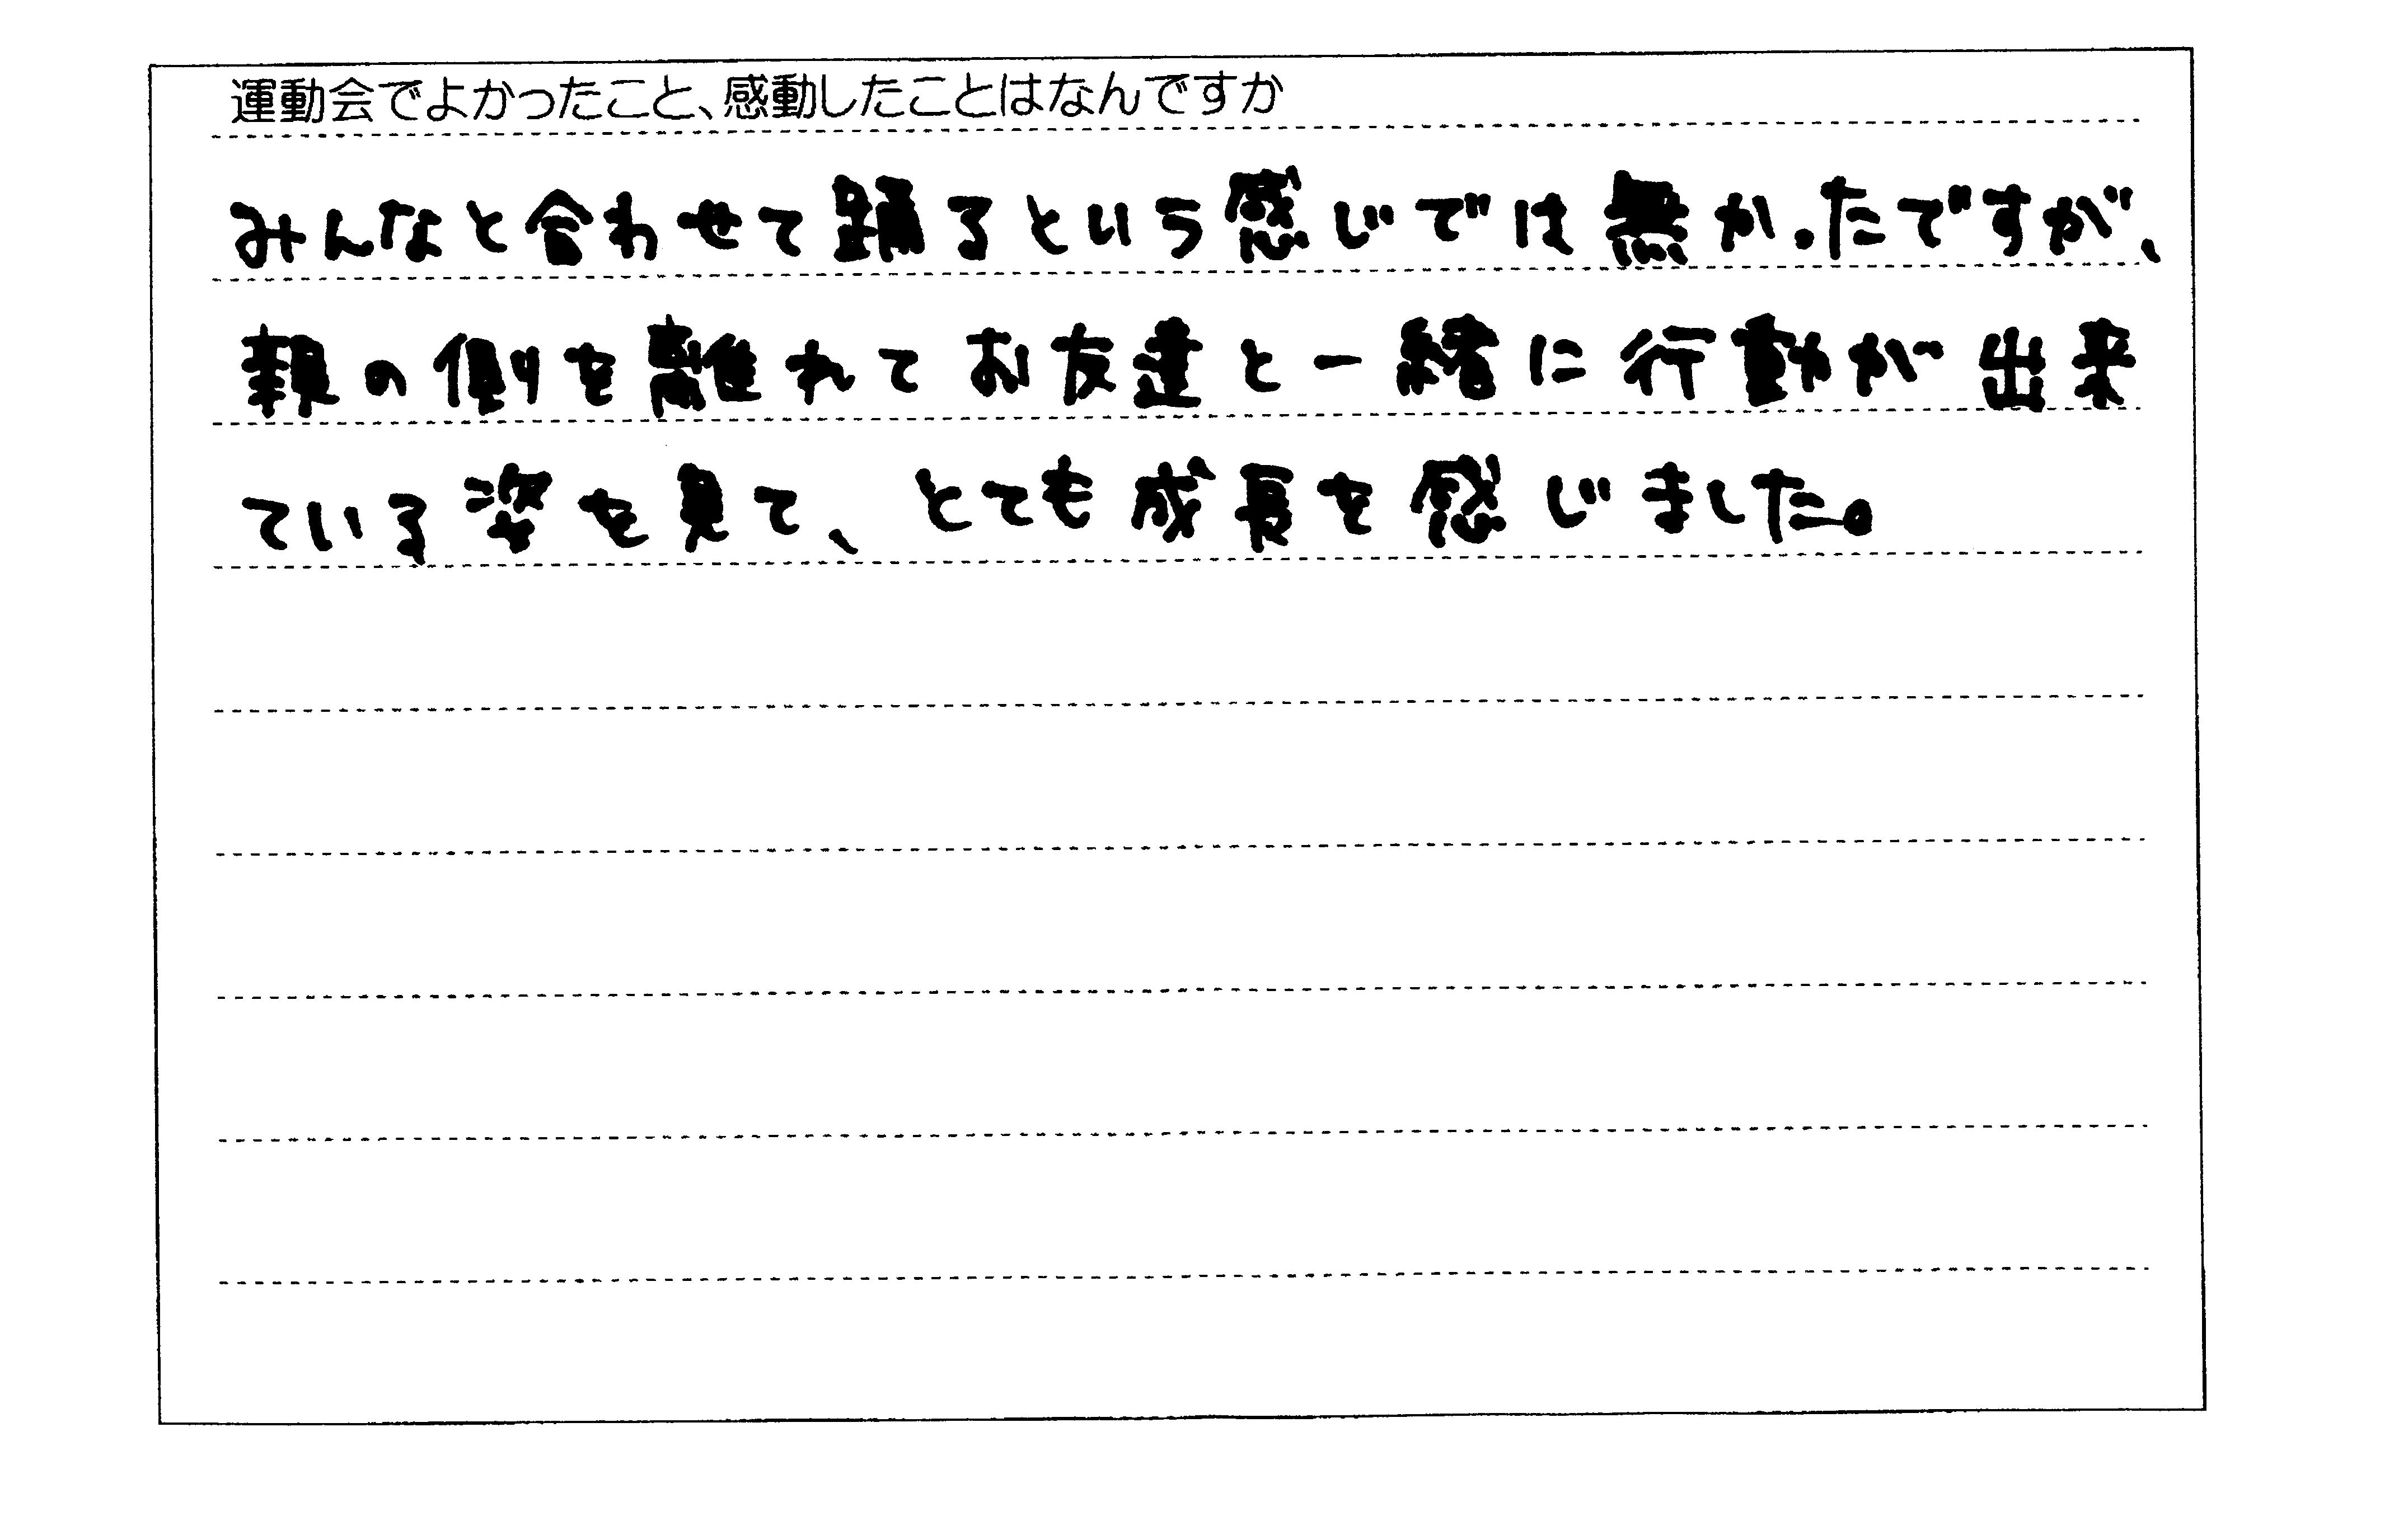 運動会でよかったこと、感動したことはなんですか
みんなと合わせて踊るという感じでは無かったですが、
親の側を離れてお友達と一緒に行動が出来
ている姿を見て、とても成長を感じました。